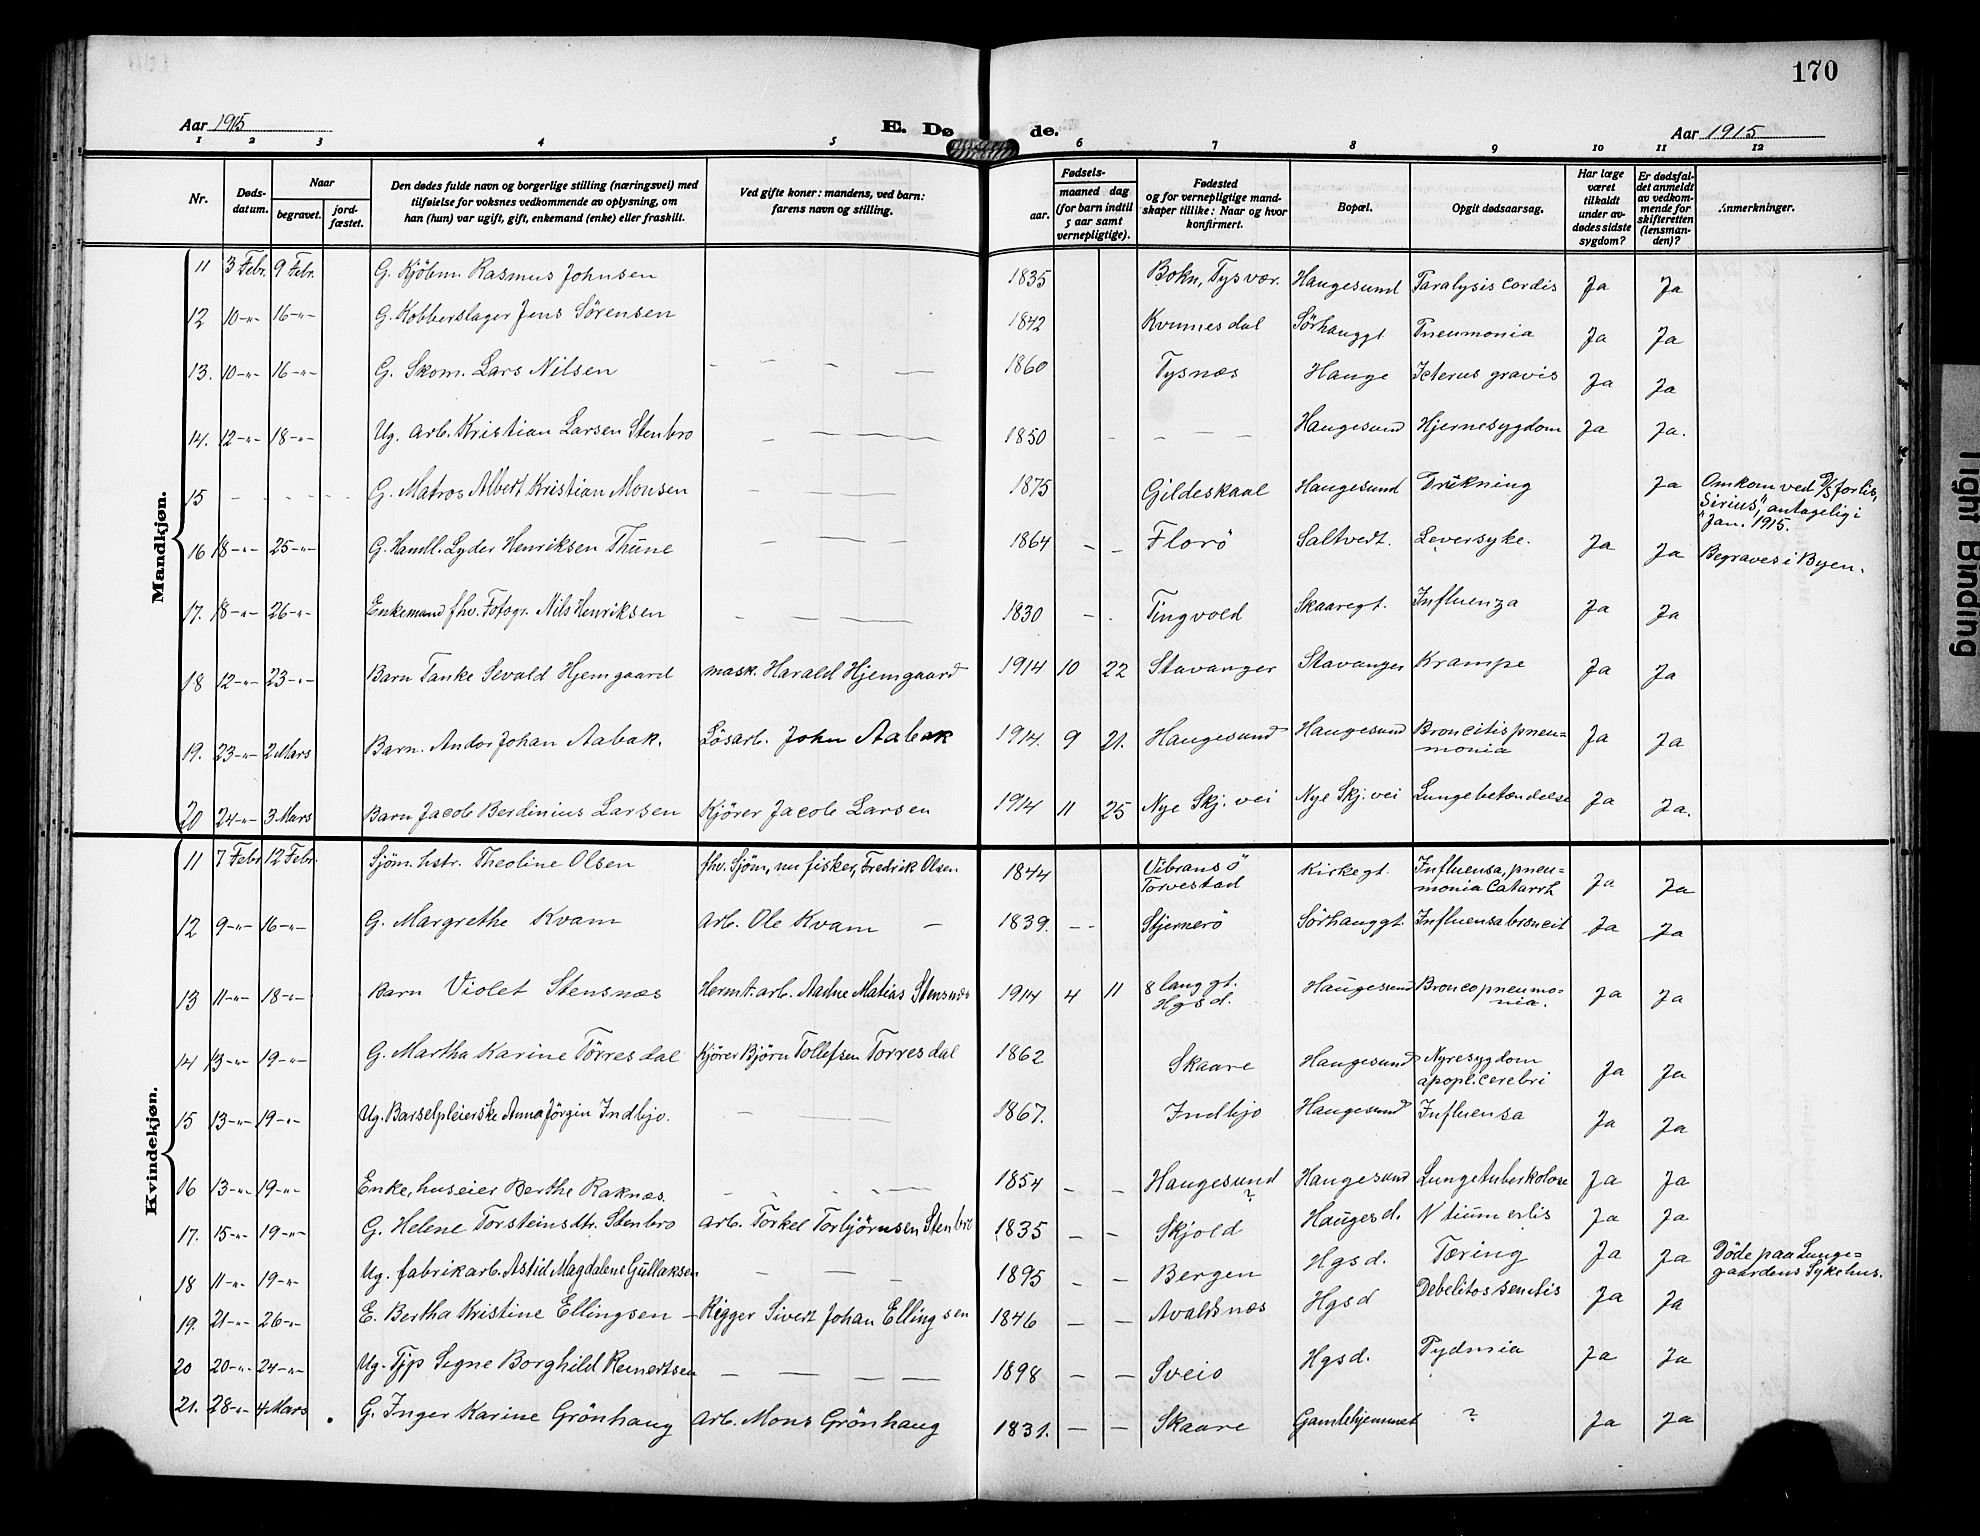 170
Aar 1915
E. Dø de.
Aar 1915
1 2 3 4 5 6 7 8 9 10 11 12
Nr.
Døds-
datum.
Naar
begravet.
jord-
fæstet.
Den dødes fulde navn og borgerlige stilling (næringsvei) med
tilføielse for voksnes vedkommende av oplysning, om
han (hun) var ugift, gift, enkemand (enke) eller fraskilt.
Ved gifte koner: mandens, ved barn:
farens navn og stilling.
Fødsels-
aar.
maaned dag
(for barn indtil
5 aar samt
vernepligtige).
Fødested
og for vernepligtige mand-
skaper tillike: Naar og hvor
konfirmert.
Bopæl.
Opgit dødsaarsag.
Har læge
været
tilkaldt
under av-
dødes sidste
sygdom?
Er dødsfal-
det anmeldt
av vedkom-
mende for
skifteretten
(lensman-
den)?
Anmerkninger.
Mandkjøn.
11 3 Febr. 9 Febr. G. Kjöbm. Rasmus Johnsen 1835 Bokn, Tysvær. Haugesund Paralysis cordis Ja Ja
12 10-"- 16-"- G. Kobberslager Jens Sørensen 1842 Kvinnesdal Sörhauggt. Pneumonia Ja Ja
13. 10-"- 16-"- G. Skom. Lars Nilsen - - - - 1860 Tysnæs Hauge Icterus gravis Ja Ja
14. 12-"- 18-"- Ug. Arb. Kristian Larsen Stenbro - - - - 1850 - - - - Haugesund Hjernesygdom Ja Ja.
15 - - - - G. Matros Albert Kristian Monsen - - - 1875 Gildeskaal Haugesund Drukning Ja Omkom ved D/S forlis,
"Sirius", antagelig i
Jan. 1915.
16 18-"- 25-"- G. Handl. Lyder Henriksen Thune - - - 1864 - - Florö Saltvedt. Leversyke. Ja Ja Begraves i Byen.
17. 18-"- 26-"- Enkemand fhv. Fotogr. Nils Henriksen - - - 1830 - - Tingvold Skaaregt. Influenza Ja Ja
18 12-"- 23-"- Barn Tanke Sevald Hjemgaard mask. Harald Hjemgaard 1914 10 22 Stavanger Stavanger Krampe Ja Ja
19. 23-"- 2 Mars Barn. Andor Johan Aabak. Lösarb. John Aabak 1914. 9 21. Haugesund Haugesund Broncitis pneu=
monia Ja Ja
20 24-"- 3 Mars Barn Jacob Berdinius Larsen Kjörer Jacob Larsen 1914 11 25 Nye Skj. vei Nye Skj. vei Lungebetændelse Ja Ja.
Kvindekjøn.
11 7 Febr 12 Febr. Sjöm. hstr. Theoline Olsen fhv. Sjöm, nu fisker, Fredrik Olsen 1844 Vibransö
Torvestad Kirkegt. Influensa, pneu=
monia Catarrh Ja Ja
12 9-"- 16-"- G. Margrethe Kvam Arb. Ole Kvam - 1839. - - Stjernerö Sörhauggt. Influensa broncit Ja Ja
13 11-"- 18-"- Barn Violet Stensnæs Hermt. arb. Aadne Matias Stensnæs 1914 4 11 8 langgt.
Hgsd. Haugesund Broncopneumo=
nia. Ja Ja
14 13-"- 19-"- G. Martha Karine Törresdal Kjörer Björn Tollefsen Torresdal 1862 Skaare Haugesund Nyresygdom
apopl. cerebri Ja Ja
15 13-"- 19-"- Ug. Barselpleierske Anna Jörgin Indbjo. - - 1867. Indbjo Haugesund Influensa Ja Ja
16 13-"- 19-"- Enke, huseier Berthe Raknæs. - - - - 1854 - - Haugesund
? Haugesund Lungetuberkolose Ja Ja
17. 15-"- 19-"- G. Helene Torsteinsdtr. Stenbro Arb. Torkel Torbjörnsen Stenbro 1835 - - Skjold Haugesd. Ja Ja
18 11-"- 19-"- Ug. fabrikarb. Astid Magdalene Gullaksen - - - 1895 - - Bergen Hgsd. Tæring Ja Ja Döde paa Lunge=
gaardens Sykehus.
19. 21-"- 26-"- E. Bertha Kristine Ellingsen - Rigger Sivert Johan Ellingsen 1846 - - Avaldsnæs Hgsd Debelitos senilis Ja Ja
20 20-"- 24-"- Ug. Tjp Signe Borghild Reinertsen - - - - 1898 - - Sveio Hgsd. Pydmia Ja Ja
21. 28-"- 4 Mars G. Inger Karine Grönhaug Arb. Mons Grönhaug 1831. - - Skaare Gamlehjemmet ? Ja Ja
Tight Binding